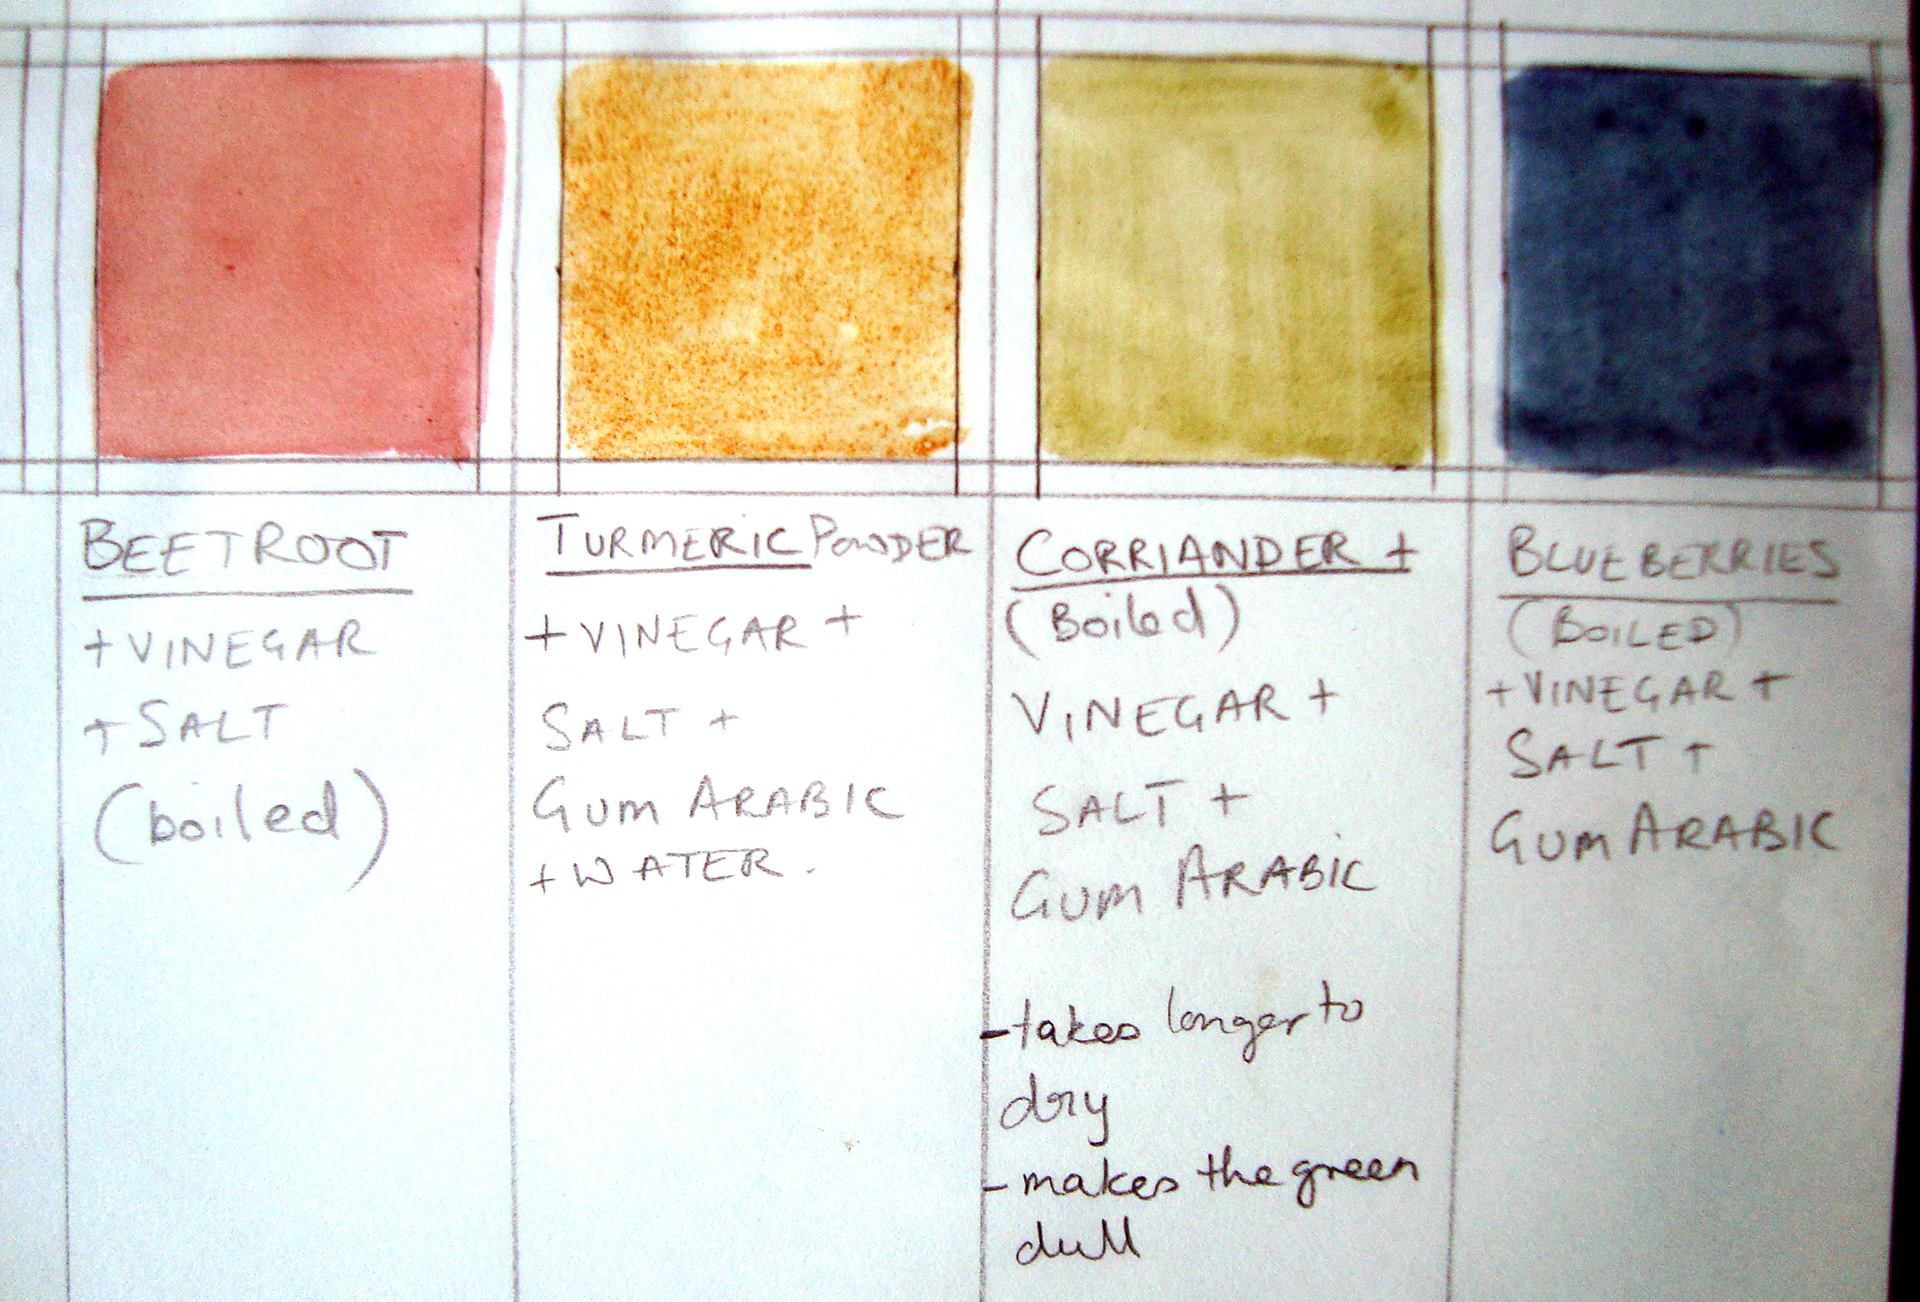 BEETROOT
+ VINEGAR
+ SALT
(boiled)
TURMERIC POWDER
+ VINEGAR +
SALT +
GUM ARABIC
+ WATER.
CORRIANDER +
(Boiled)
VINEGAR +
SALT +
GUM ARABIC
- takes longer to
dry
- makes the green
dull
BLUEBERRIES
(BOILED)
+ VINEGAR +
SALT +
GUM ARABIC